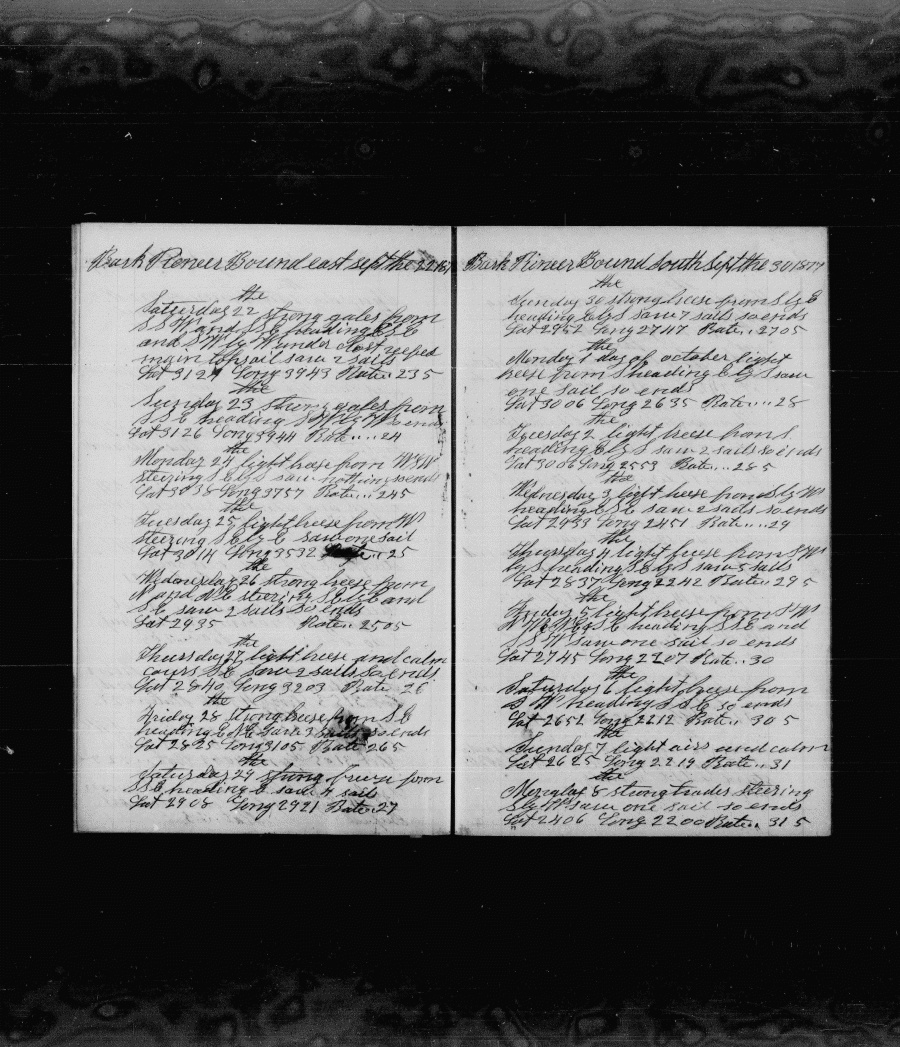 Bark Pioneer Bound east sept the 22 1877
the
Saturday 22 strong gales from
S S W and S S E heading E S E
and S W by W under close reefed
main topsail saw 2 sails
Lat 31 24 Long 39 43 Rate.. 23 5
the
Sunday 23 strong gales from
S S E heading S W by W so ends
Lat 31 26 Long 39 44 Rate....24
the
Monday 24 light breese from WSW
steering S E by S saw nothing so ends
Lat 30 38 Long 37 57 Rate... 24 5
the
Tuesday 25 light breese from W
steering S E by E saw one sail
Lat 30 14 Long 35 32 .. 25
the
Wednesday 26 strong breese from
N and N E steering S E by E and
S E saw 2 sails so ends
Lat 29 35 Rate.. 25 05
the
Thursday 27 light breese and calm
cours S E saw 2 sails so ends
Lat 28 40 Long 32 03 Rate.. 26
the
Friday 28 strong breese from S E
heading saw 3 sails so ends
Lat 28 25 Long 31 05 Rate 26 5
the
Saturday 29 strong breese from
S S E heading E saw 4 sails
Lat 29 08 Long 29 21 Rate.. 27
Bark Pioneer Bound south Sept the 30 1877
the
Sunday 30 strong breese from S by E
heading E by S saw 7 sails so ends
Lat 29 52 Long 27 47 Rate.. 27 05
the
Monday 1 day of october light
breese from S heading E by S saw
one sail so ends
Lat 30 06 Long 26 35 Rate.... 28
the
Tuesday 2 light breese from S
heading E by S saw 2 sails so ends
Lat 30 06 Long 25 53 Rate.. 28 5
the
Wednesday 3 light breese from S by W
heading E S E saw 2 sails so ends
Lat 29 33 Long 24 51 Rate....29
the
Thursday 4 light breese from S W
by S heading S E by S saw 5 sails
Lat 28 37 Long 22 42 Rate.. 29 5
the
Friday 5 light breese from S W
heading S S E and
S S W saw one sail so ends
Lat 27 45 Long 22 07 Rate.. 30
the
Saturday 6 light breese from
S W heading S S E so ends
Lat 26 52 Long 22 12 Rate.. 30 5
the
Sunday 7 light airs and calm
Lat 26 25 Long 22 19 Rate.. 31
the
Monday 8 strong trades steering
S by W saw one sail so ends
Lat 24 06 Long 22 00 Rate.. 31 5